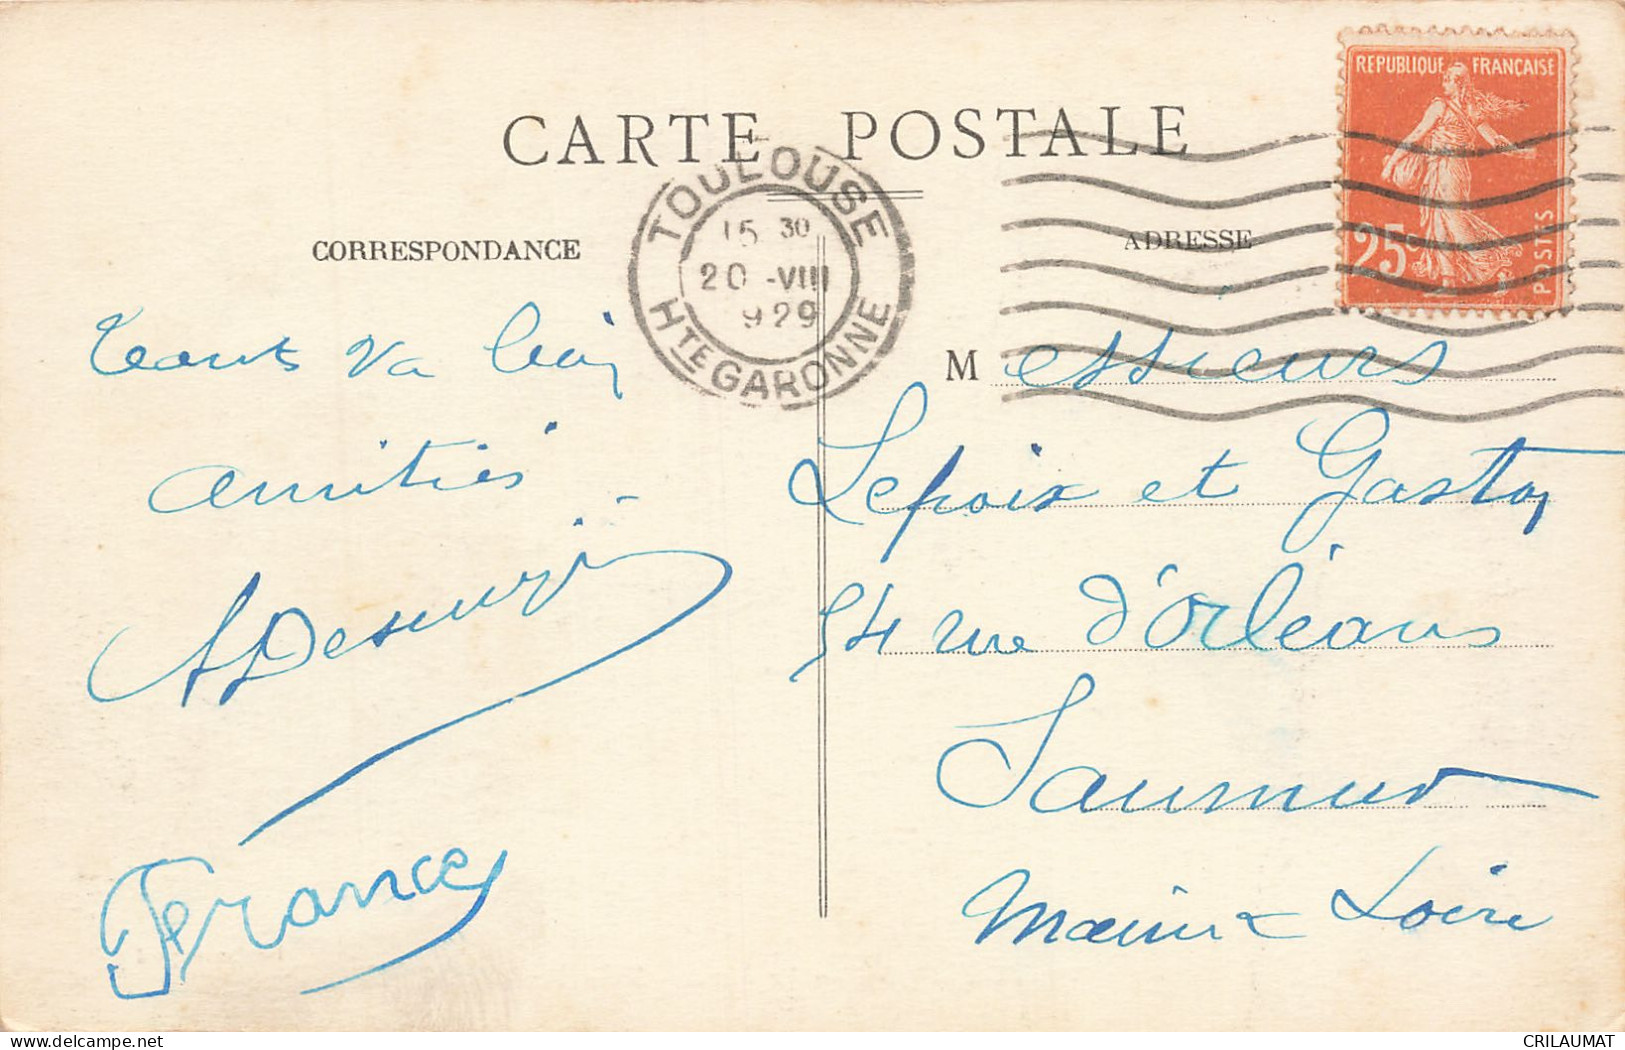 CARTE POSTALE
TOULOUSE
15 30
20 -VIII
929
HTE GARONNE
REPUBLIQUE FRANÇAISE
25c
POSTES
CORRESPONDANCE
ADRESSE
tout va bien
amitiés
France
Messieurs
Lepoix et Gaston
54 rue d'Orléans
Saumur
Maine & Loire
delcampe.net
CRILAUMAT